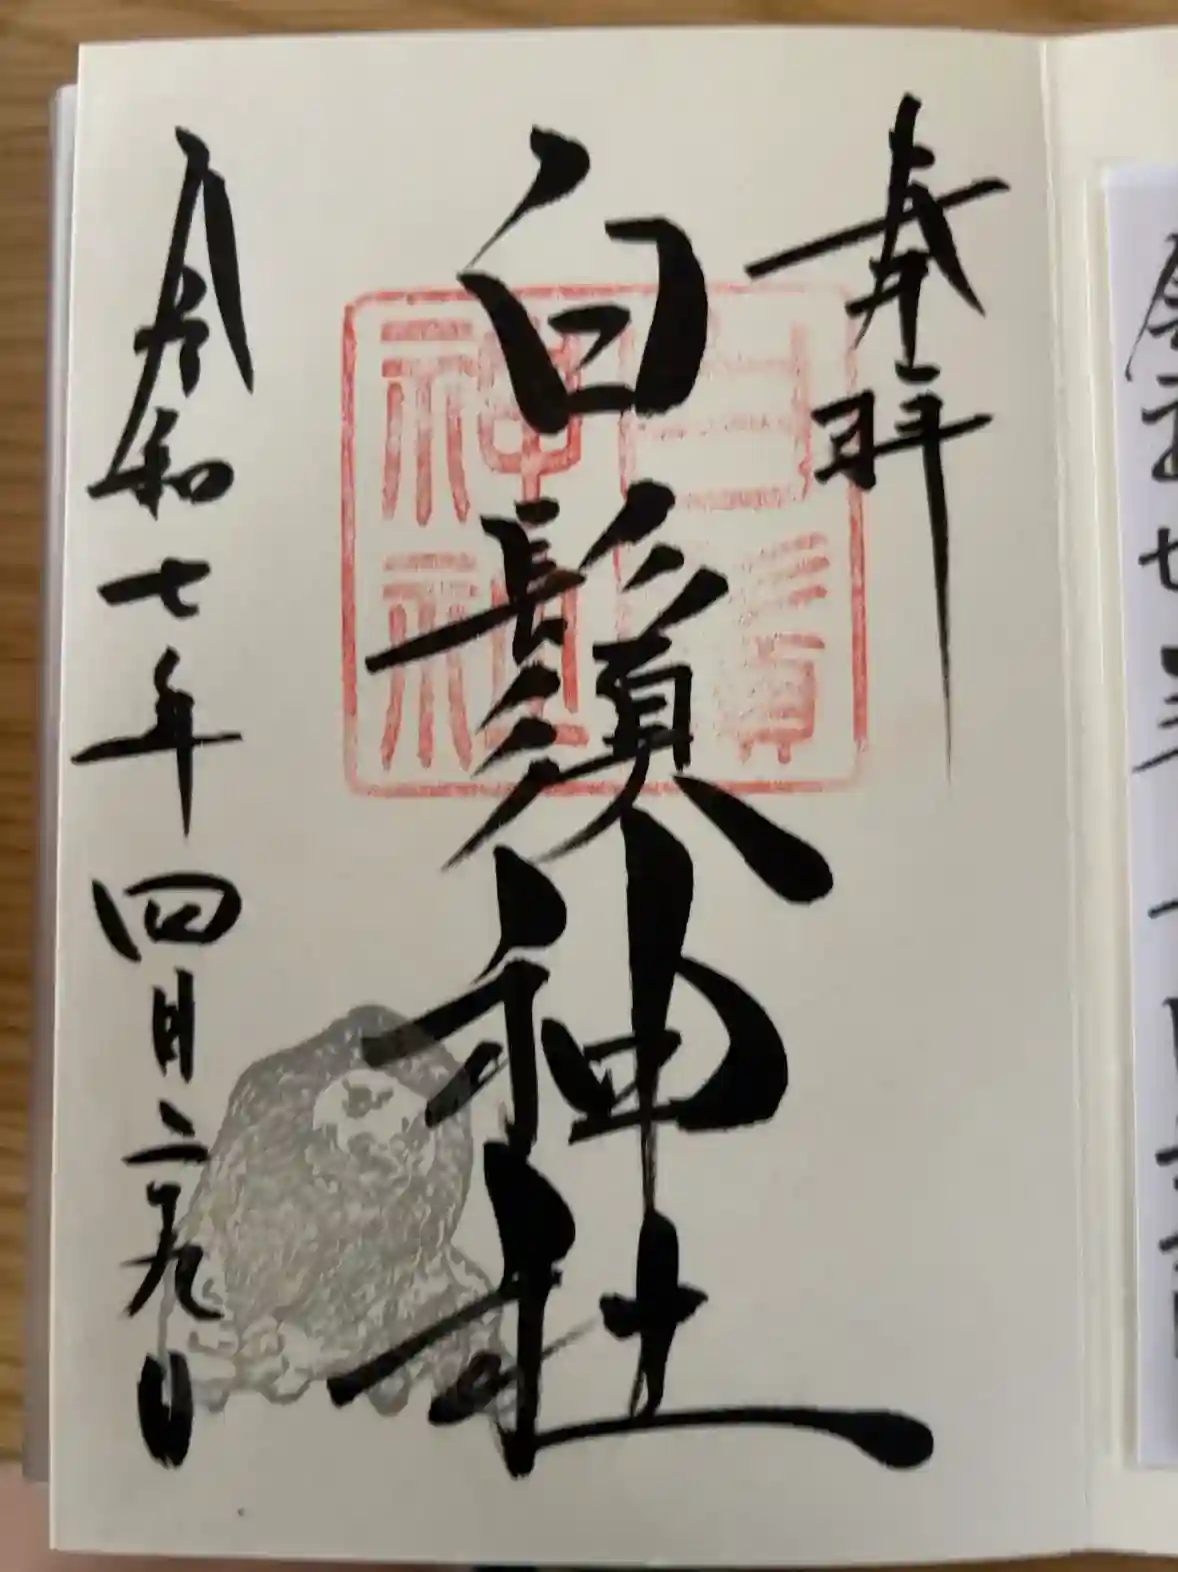 奉拝
白鬚神社
令和七年四月二十九日
白鬚
神社
令和七年